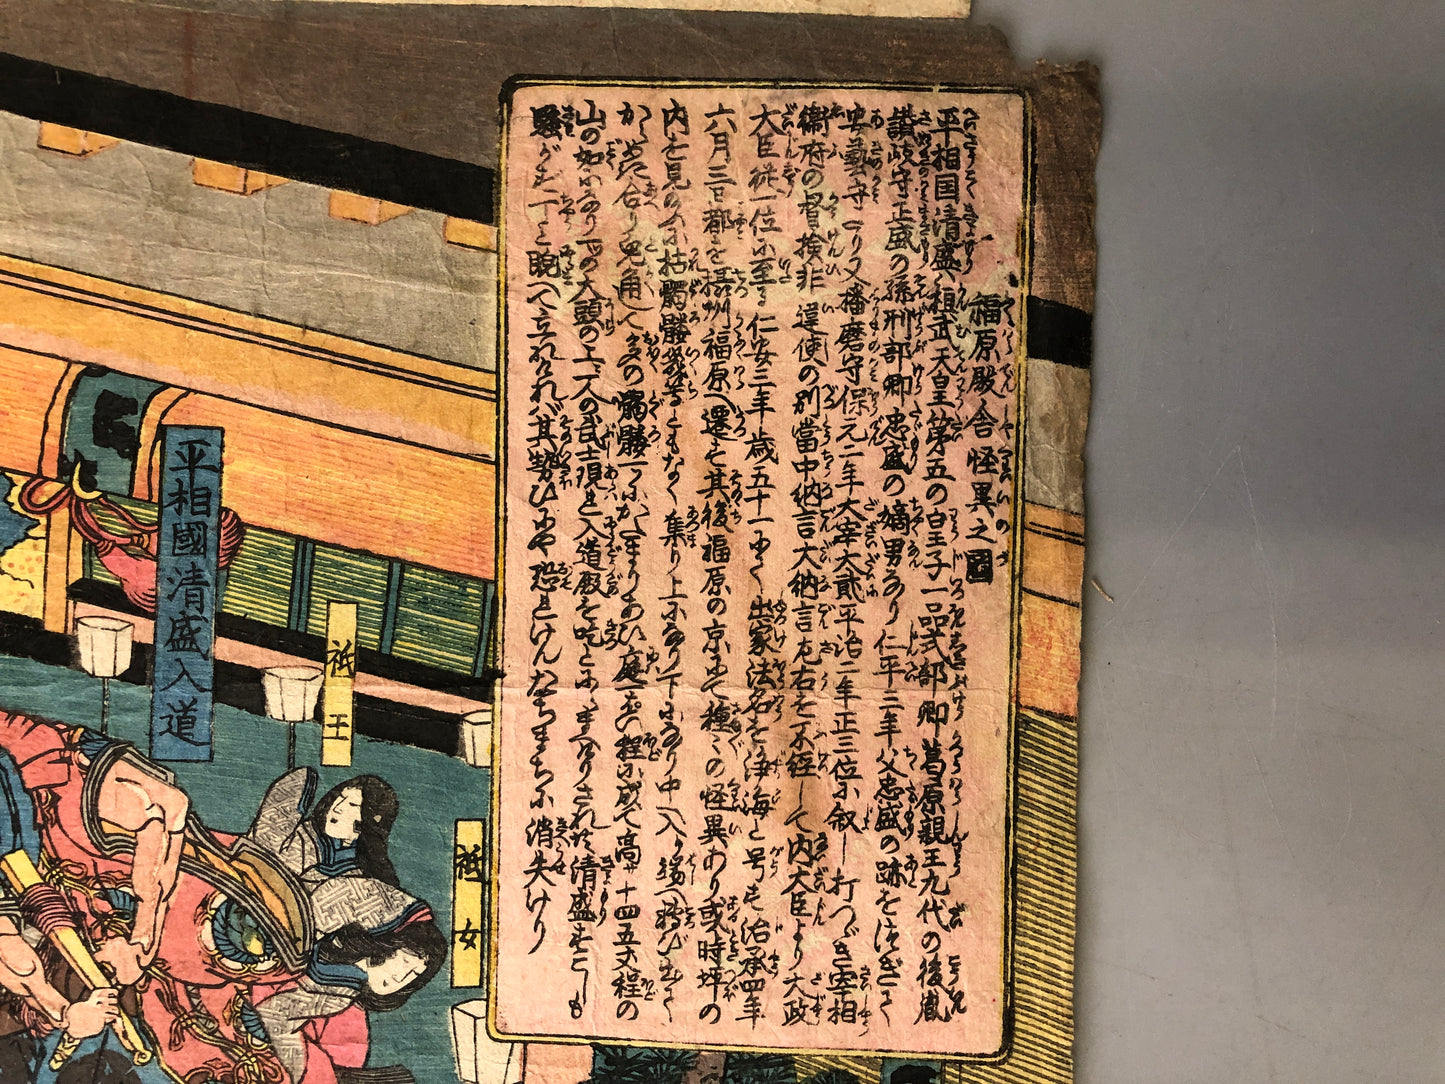 福原殿舎怪異之圖
平相国清盛ハ桓武天皇第五の皇子一品式部卿葛原親王九代の後胤
讃岐守正盛の孫刑部卿忠盛の嫡男なり仁平三年父忠盛の跡をつぎて
安藝守となり又播磨守保元二年大宰大貳平治二年正三位に叙し打つゞき宰相
衛府の督検非違使の別當中納言大納言左右を不經して内大臣より大政
大臣従一位に至る仁安三年歳五十一にて出家法名を浄海と号す治承四年
六月三日都を摂州福原へ遷す其後福原の京にて種々の怪異あり或時坪の
内を見るに枯髑髏幾等ともなく集り上になり下になり中入り端へ轉び出て
からめき合り兎角して多の髑髏一つにかたまりあひ庭一はい程に成て高サ十四五丈程の
山の如になり一の大頭の上に人の武士現れ入道殿を
騒がず丁と睨へて立れければ其勢ひにや恐れけんたちまちに消失けり
平相國清盛入道
祇王
祇女